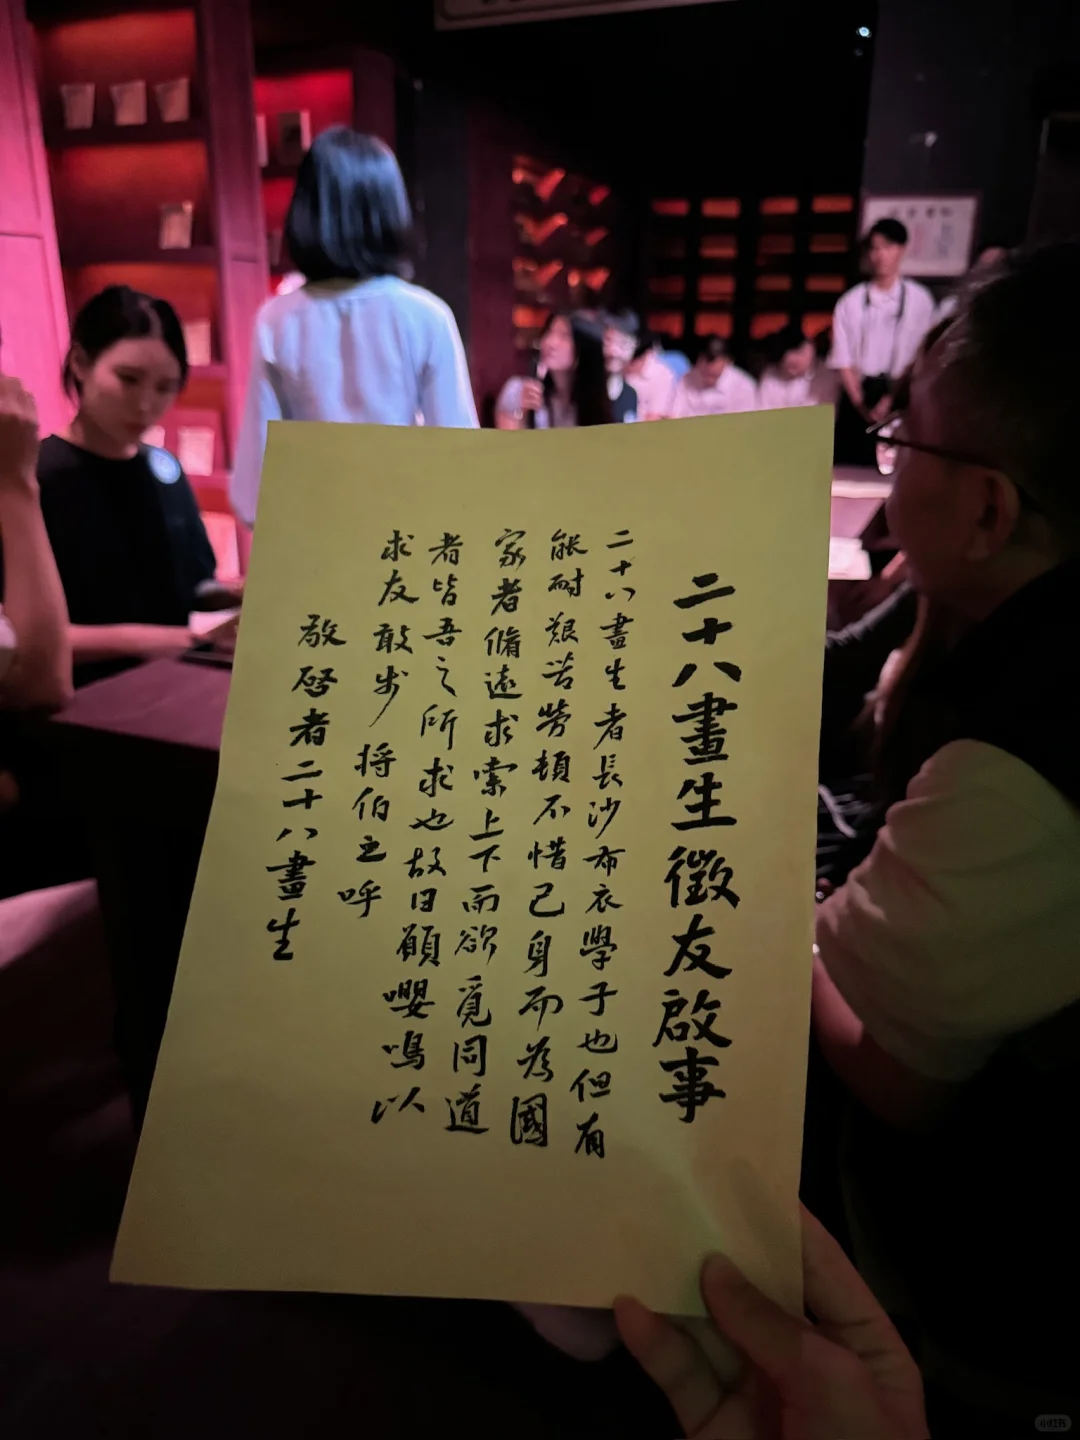 二十八畫生徵友啟事
二十八畫生者長沙布衣學子也但有
能耐艱苦勞頓不惜己身而為國
家者脩遠求索上下而欲覓同道
者皆吾之所求也故曰願嚶鳴以
求友敢步將伯之呼
敬啓者二十八畫生
小红书